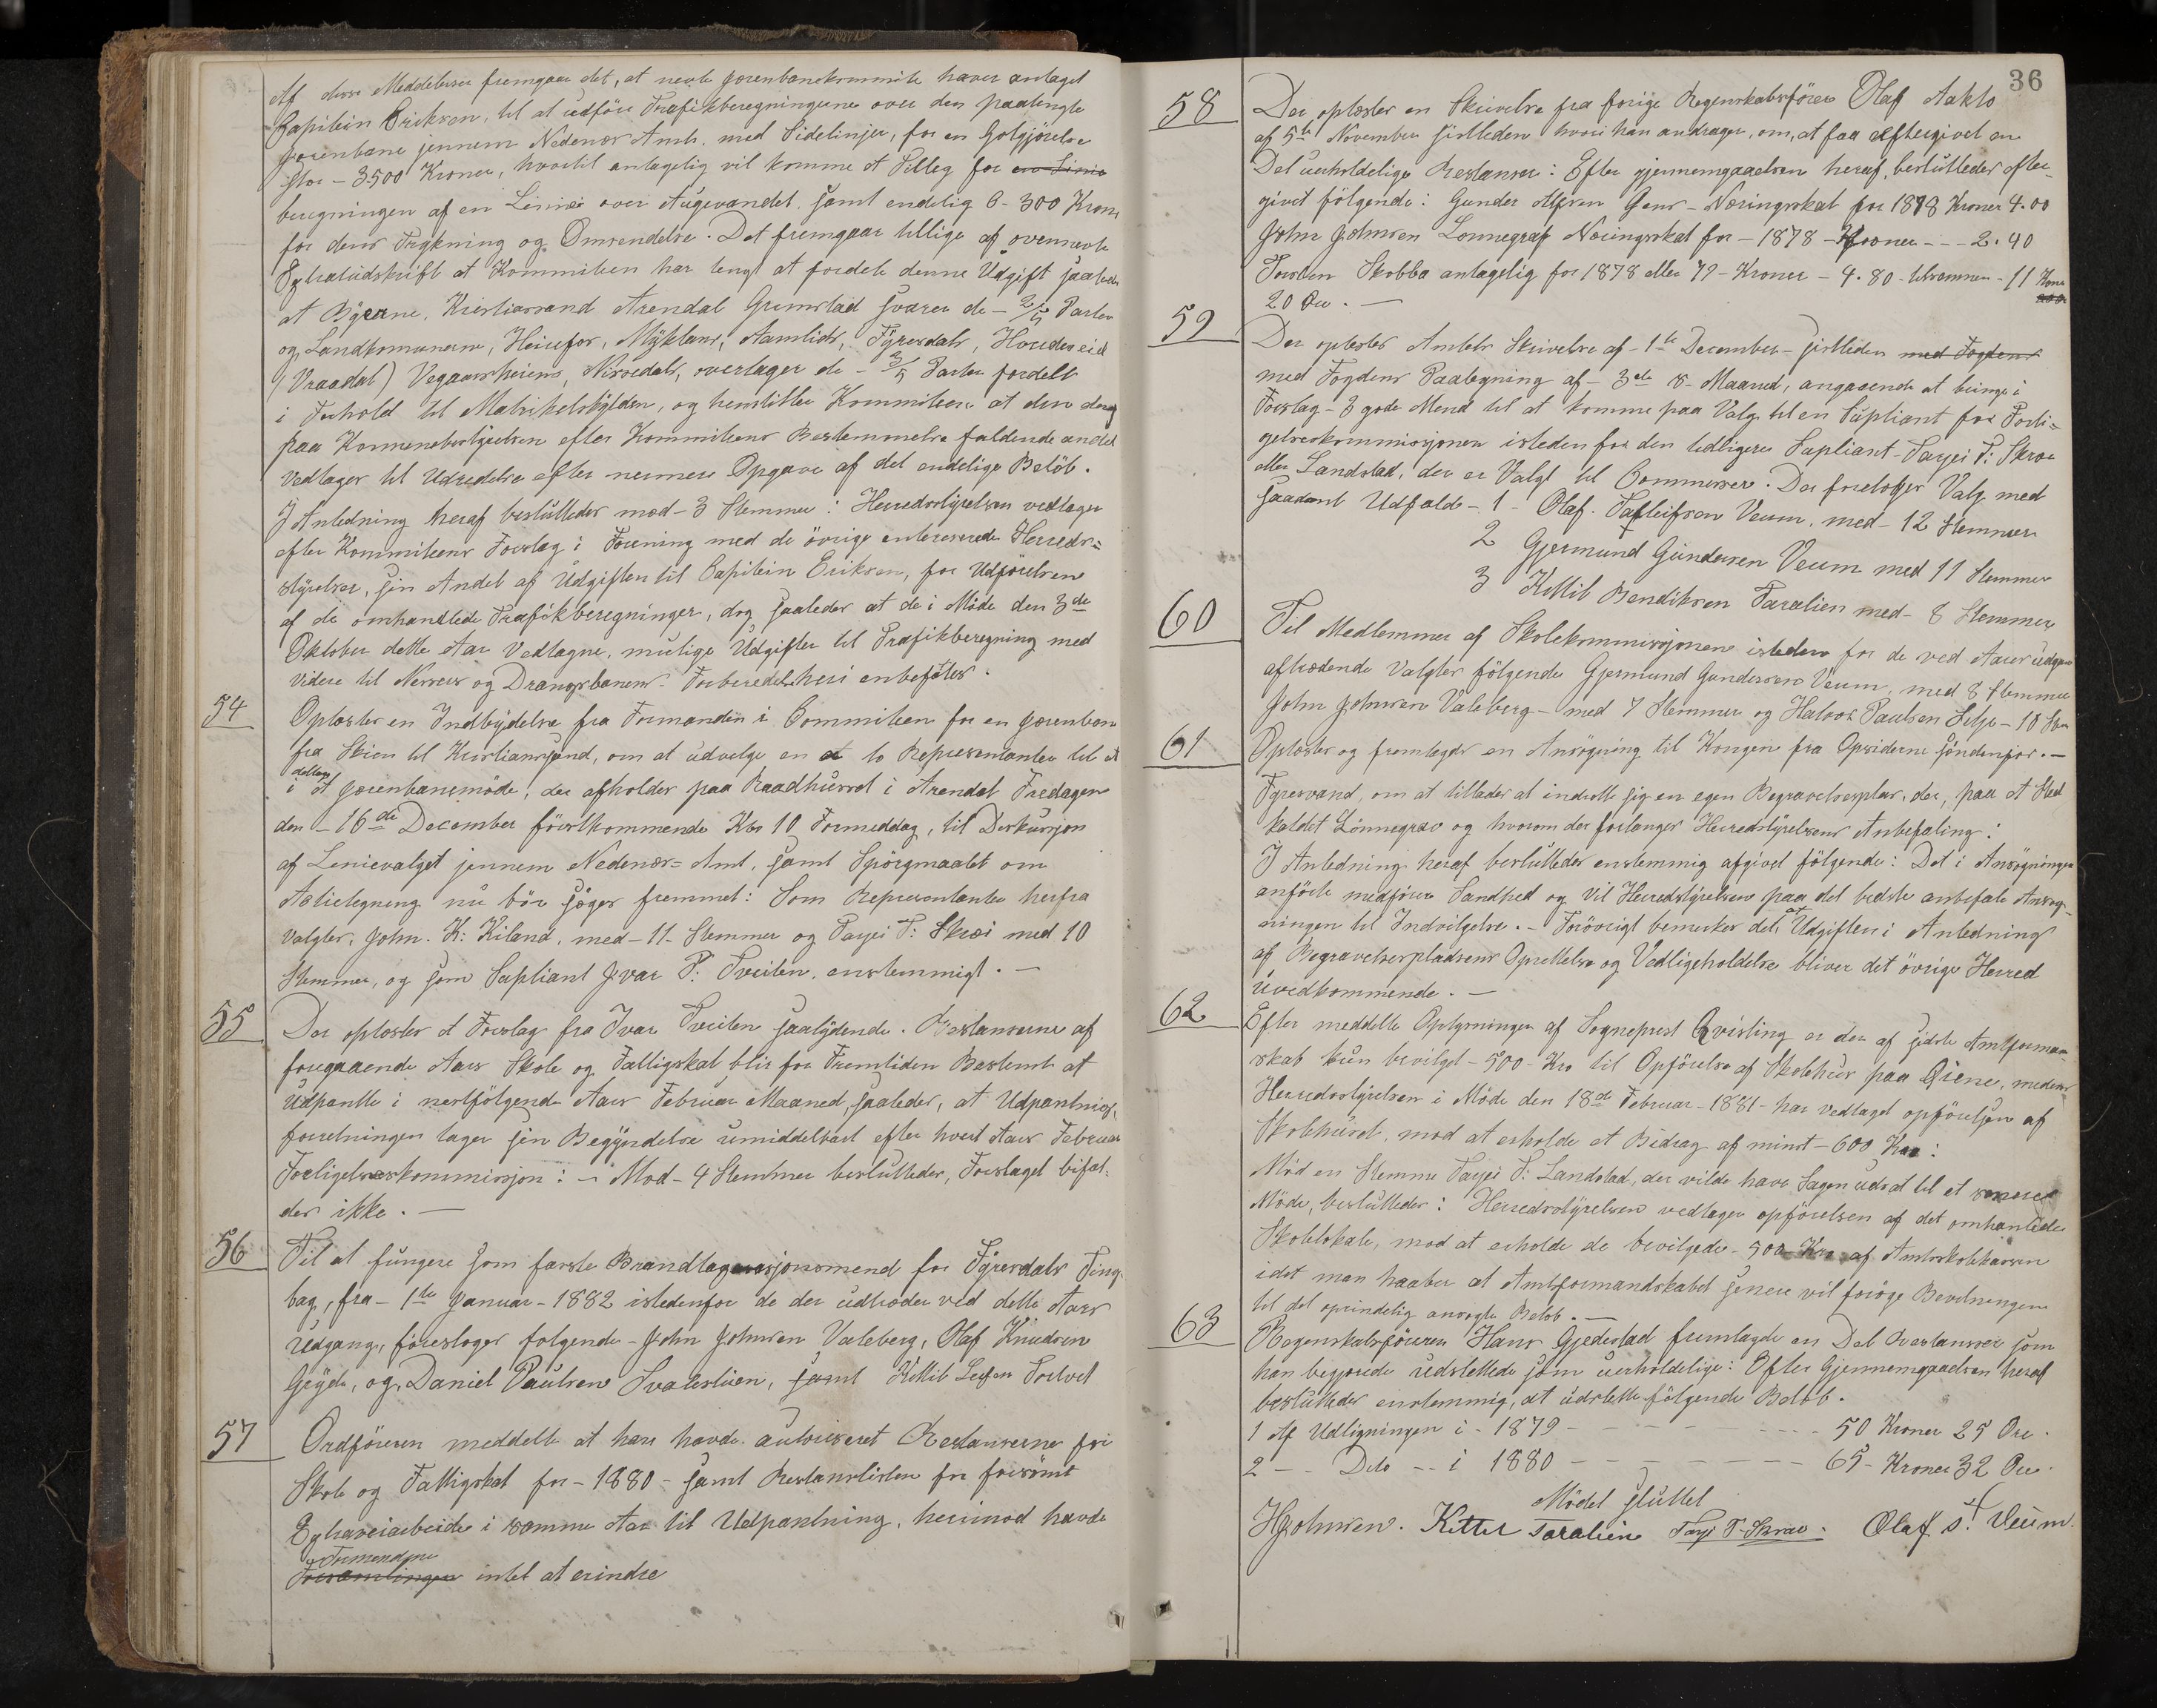 Af disse Meddelelser fremgaar det, at nevte Jærenbanekommite haver antaget
Capitein Eriksen, til at udføre Trafikberegningerne over den paatengte
Jærenbane jennem Nedenæs Amt, med Sidelinjer, for en Gotgjörelse
stor - 3500 Kroner, hvortil antagelig vil komme et Tilleg for en Linie
beregningen af en Linie over Augevandet, samt endelig 6-300 Kroner
for deres Trykning og Omsendelse. Det fremgaar tillige af ovennevte
Extratudskrift at Kommiteen har tengt at fordele denne Udgift saaledes
at Byerne, Kristiansand Arendal Grimstad svarer de - 2/5 Parter
og Landkomunerne, Heirefos, Myklans, Aamlids, Fyresdals, Hvideseid
(Vraadal) Vegaarsheiens, Nissedals, overtager de - 3/5 Parter fordelt
i Forhold til Matrikelskylden, og henstiller Kommiteen at den derog
paa Kommunebestyrelsen efter Kommiteens Bestemmelse faldende andel
vedtages til Udredelse efter nermere Opgave af det endelige Beløb.
I Anledning heraf besluttedes mod - 3 Stemmer: Herredsstyrelsen vedtager
efter Kommiteens Forslag i Forening med de övrige enteresserede Herreds=
styrelser, sin Andel af Udgiften til Capitein Eriksen, for Udförelsen
af de omhandlede Trafikberegninger, dog saaledes at de i Möde den 3de
Oktober dette Aar vedtagne, mulige Udgifter til Trafikberegning med
videre til Nersnes og Drangsbanens Forberedelse heri enbefattes.
54
Oplæstes en Indbydelse fra Formanden i Commiteen for en Jærenbane
fra Skien til Kristianssand, om at udvelge en a to Represententer til at
deltage
i et Jærenbanemöde, der afholdes paa Raadhusset i Arendal Fredagen
den - 16de December förstkommende Klo 10 Formeddag, til Deskursjon
af Lenievalget jennem Nedenæs= Amt, samt Spörgmaalet om
Actietegning nu bör söges fremmet: Som Represententer herfra
valgtes, John. K: Kiland, med - 11 - Stemmer og Tarjei T: Skræi med 10
Stemmer, og som Supliant Ivar P: Tveiten, enstemmigt. -
55
Der oplæstes et Forslag fra Ivar Tveiten saalydende. Restanserne af
foregaaende Aars Skole og Fattigskat blir for Fremtiden Bestemt at
Udpantte i nestfölgende Aars Februar Maaned, saaledes, at Udpantnings
forretningen tager sin Begyndelse umiddelbart efter hvert Aars Februar
Forligelseskommissjon: - Mod - 4 Stemmer besluttedes, Forslaget bifal=
des ikke. -
56
Til at fungere som første Brandtagssjonsmend for Fyresdals Ting=
lag, fra - 1ste Januar - 1882 istedenfor de der udtræder ved dette Aars
Udgang, föresloges folgende - John Johnsen Valeberg, Olaf Knudsen
Gryde, og, Daniel Paulsen Svalestuen, samt Kittil Leifsen Tostvet
57
Ordföreren meddelte at han havde autoriseret Restanserne for
Skole og Fattigskat for - 1880 - samt Restanslisten for forsömt
Extraveiarbeide i samme Aar til Udpantning, herimod havde
Formendene
Forsamlingen intet at erindre
36
58
Der oplæstes en Skrivelse fra forige Regenskabsförer Olaf Aakto
af 5te November sistleden hvori han andrager, om, at faa eftergivet en
Del uerholdelige Restanser: Efter gjennemgaaelsen heraf, besluttedes efter=
givet fölgende: Gunder Alfsen Gens - Næringsskat for 1878 Kroner 4.00
John Johnsen Lonnegrav Næringsskat for - 1878 - Kroner - - - 2.40
Torsten Skobba antagelig for 1878 eller 79 - Kroner - 4.80 - tilsammen - 11 Kroner
20 Øre. -
59
Der oplæstes Amtets Skrivelse af - 1ste December - sistleden med Fogdens
med Fogdens Paategning af - 3die s. Maaned, angaaende at bringe i
Forslag - 3 gode Mend til at komme paa Valg til en Supliant for Forli=
gelseskommissjonen isteden for den tidligere Supliant Tarjei T: Skræe
eller Landstad, der er Valgt til Commesær. Der foretoges Valg med
saadant Udfald - 1 - Olaf. Tarleifsen Veum, med - 12 Stemmer
2 Gjermund Gundersen Veum med 11 Stemmer
3 Kittil Bendiksen Taralien med - 8 Stemmer
60
Til Medlemmer af Skolekommissjonen isteden for de ved Aarsudgan
aftrædende valgtes fölgende Gjermund Gundersen Veum, med 8 Stemmer
John Johnsen Valeberg - med 7 Stemmer og Halvor Paulsen Silje - 10 St
61
Oplæstes og fremlagdes en Ansögning til Kongen fra Opsiderne söndenfor. -
Fyresvand, om at tillades at indrette sig en egen Begravelsesplads, der, paa et Sted
kaldet Lönnegrav og hvorom der forlanges Herredsstyrelsens Anbefaling:
I Anledning heraf besluttedes enstemmig afgivet fölgende: Det i Ansögningen
anförte medförer Sandhed og vil Herredsstyrelsen paa det bedste anbefale Ansög=
ningen til Indvilgelse. - Forövrigt bemerkes det, at Udgiften i Anledning
af Begravelsespladsens Oprettelse og Vedligeholdelse bliver det övrige Herred
uvedkommende. -
62
Efter meddelte Oplysninger af Sogneprest Qvisling er der af sidste Amtforman=
skab kun bevilget - 500 - Kro til Opförelse af Skolehus paa Qiene, medens
Herredsstyrelsen i Möde den 18de Februar - 1881 - har vedtaget opförelsen af
Skolehuset, mod at erholde et Bidrag af minst - 600 Kro:
Mod en Stemme Tarjei T: Landstad, der vilde have Sagen udsat til et senere
Möde, besluttedes: Herredsstyrelsen vedtager opförelsen af det omhanlede
Skolelokale, mod at erholde de bevilgede - 500 Kro af Amtsskolekassen
idet man haaber at Amtformandskabet senere vil foröge Bevilningen
til det oprindelig ansögte Belöb. -
63
Regenskabsföreren Hans Gjedestad fremlagde en Del Restanser som
han begjærede udslettede som uerholdelige: Efter Gjennemgaaelsen heraf
besluttedes enstemmig, at udslette fölgende Belöb.
1 Af Udligningen i - 1879 - - - - - - 50 Kroner 25 Øre.
2 - - Dito - - i 1880 - - - - - - 65 - Kroner 32 Øre.
Mödet sluttet
HJohnsen. Kittel Taralien Tarje T. Skræe. Olaf. S. Veum.